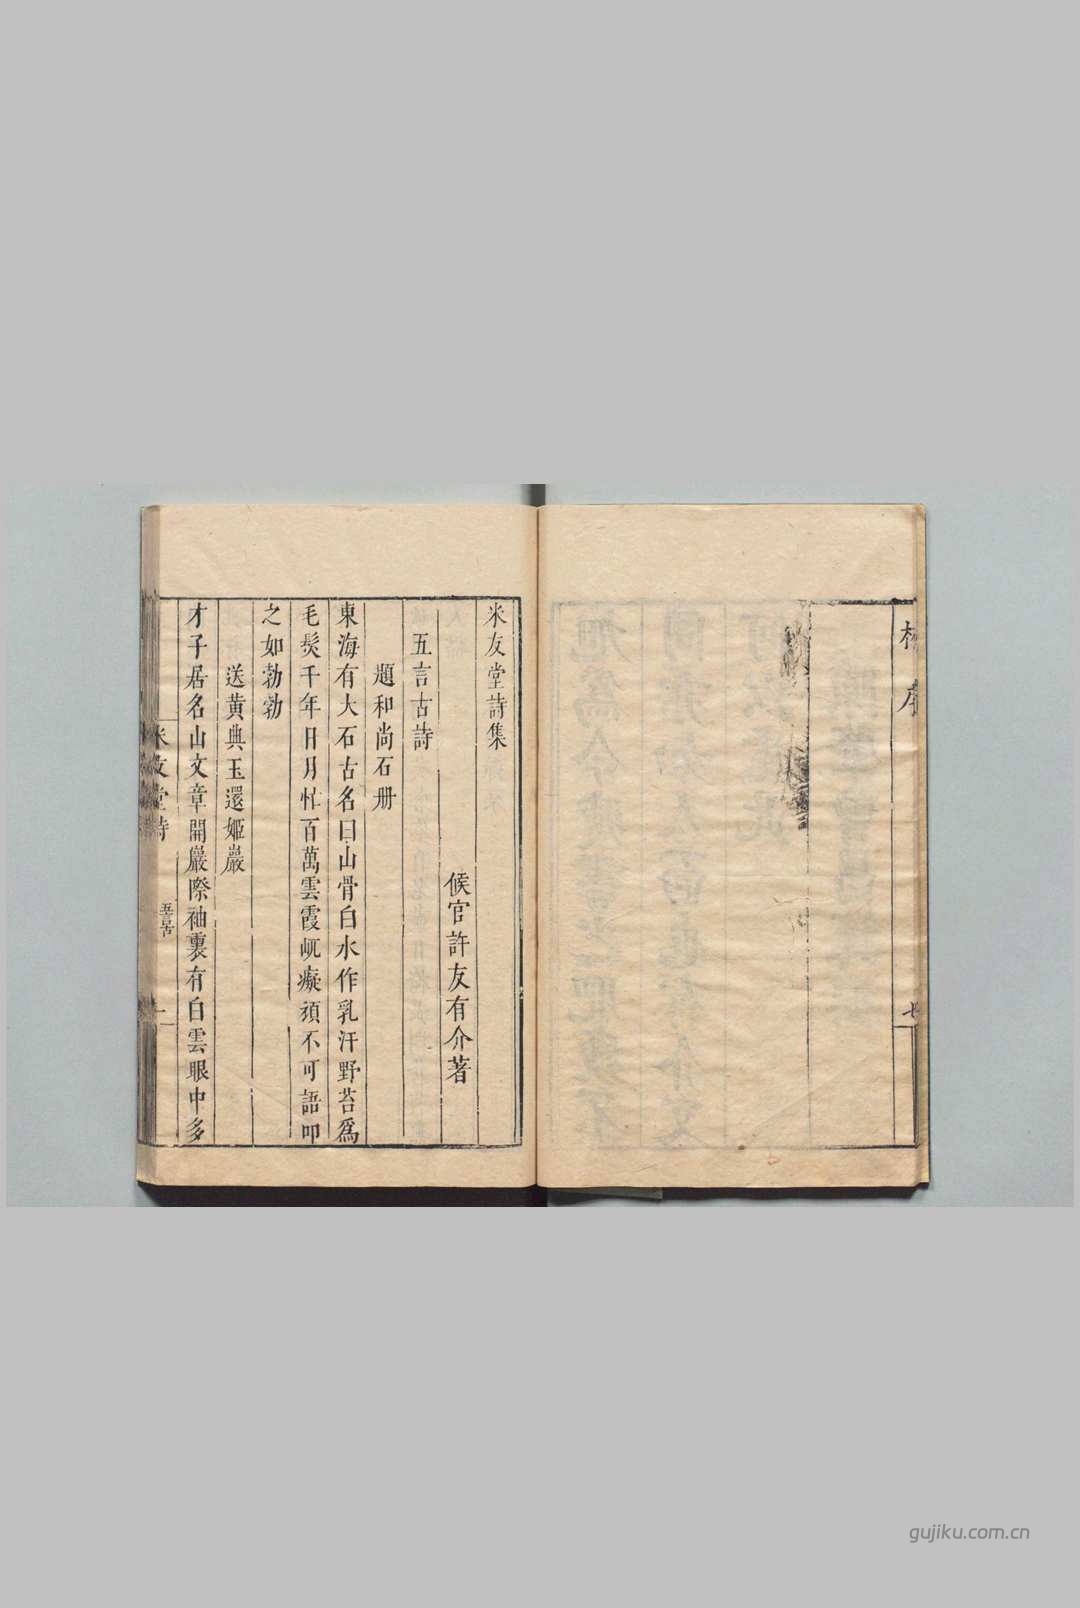 序
七
米友堂詩集
候官許友有介著
五言古詩
題和尚石册
東海有大石古名曰山骨白水作乳汗野苔爲
毛髮千年日月忙百萬雲霞屼癡頑不可語叩
之如勃勃
送黄典玉還姬巖
才子居名山文章開巖際袖裏有白雲眼中多
米友堂詩
五言古
一
gujiku.com.cn